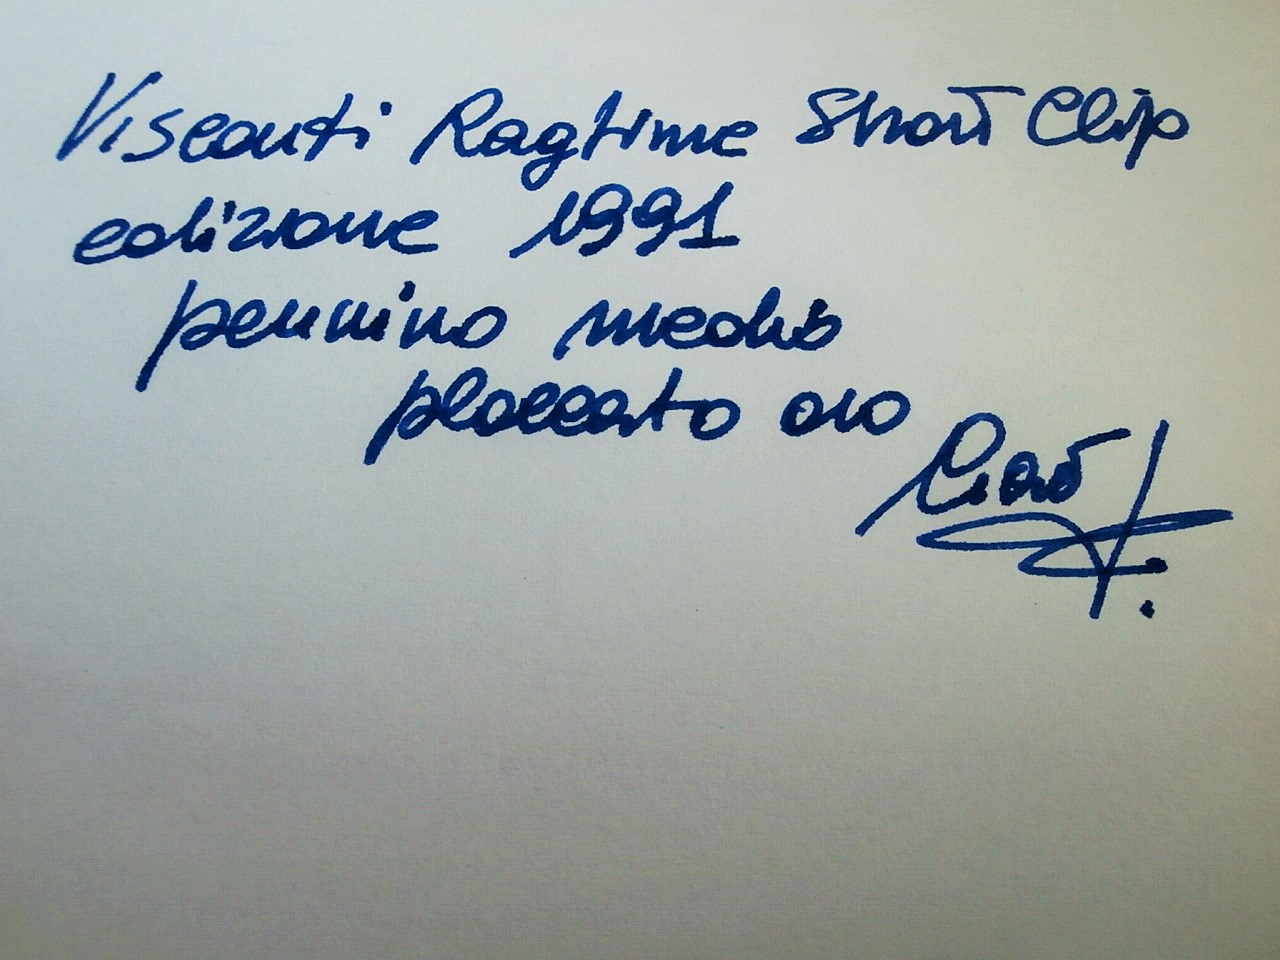 Visconti Ragtime Short Clip
edizione 1991
pennino medio
placcato oro
Ciao